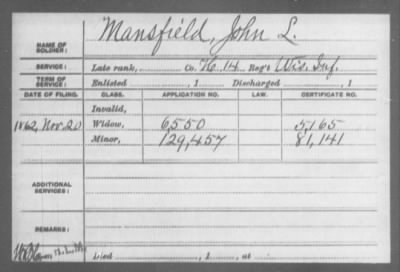 Mansfield, John L.
NAME OF SOLDIER:
SERVICE: Late rank, Co. H, 14 Reg't Wis. Inf.
TERM OF SERVICE: Enlisted , 1 Discharged , 1
DATE OF FILING. CLASS. APPLICATION NO. LAW. CERTIFICATE NO.
Invalid,
1862, Nov. 20 Widow, 6550 5,165
Minor, 129,457 81,141
ADDITIONAL SERVICES:
REMARKS:
Died , 1 , at